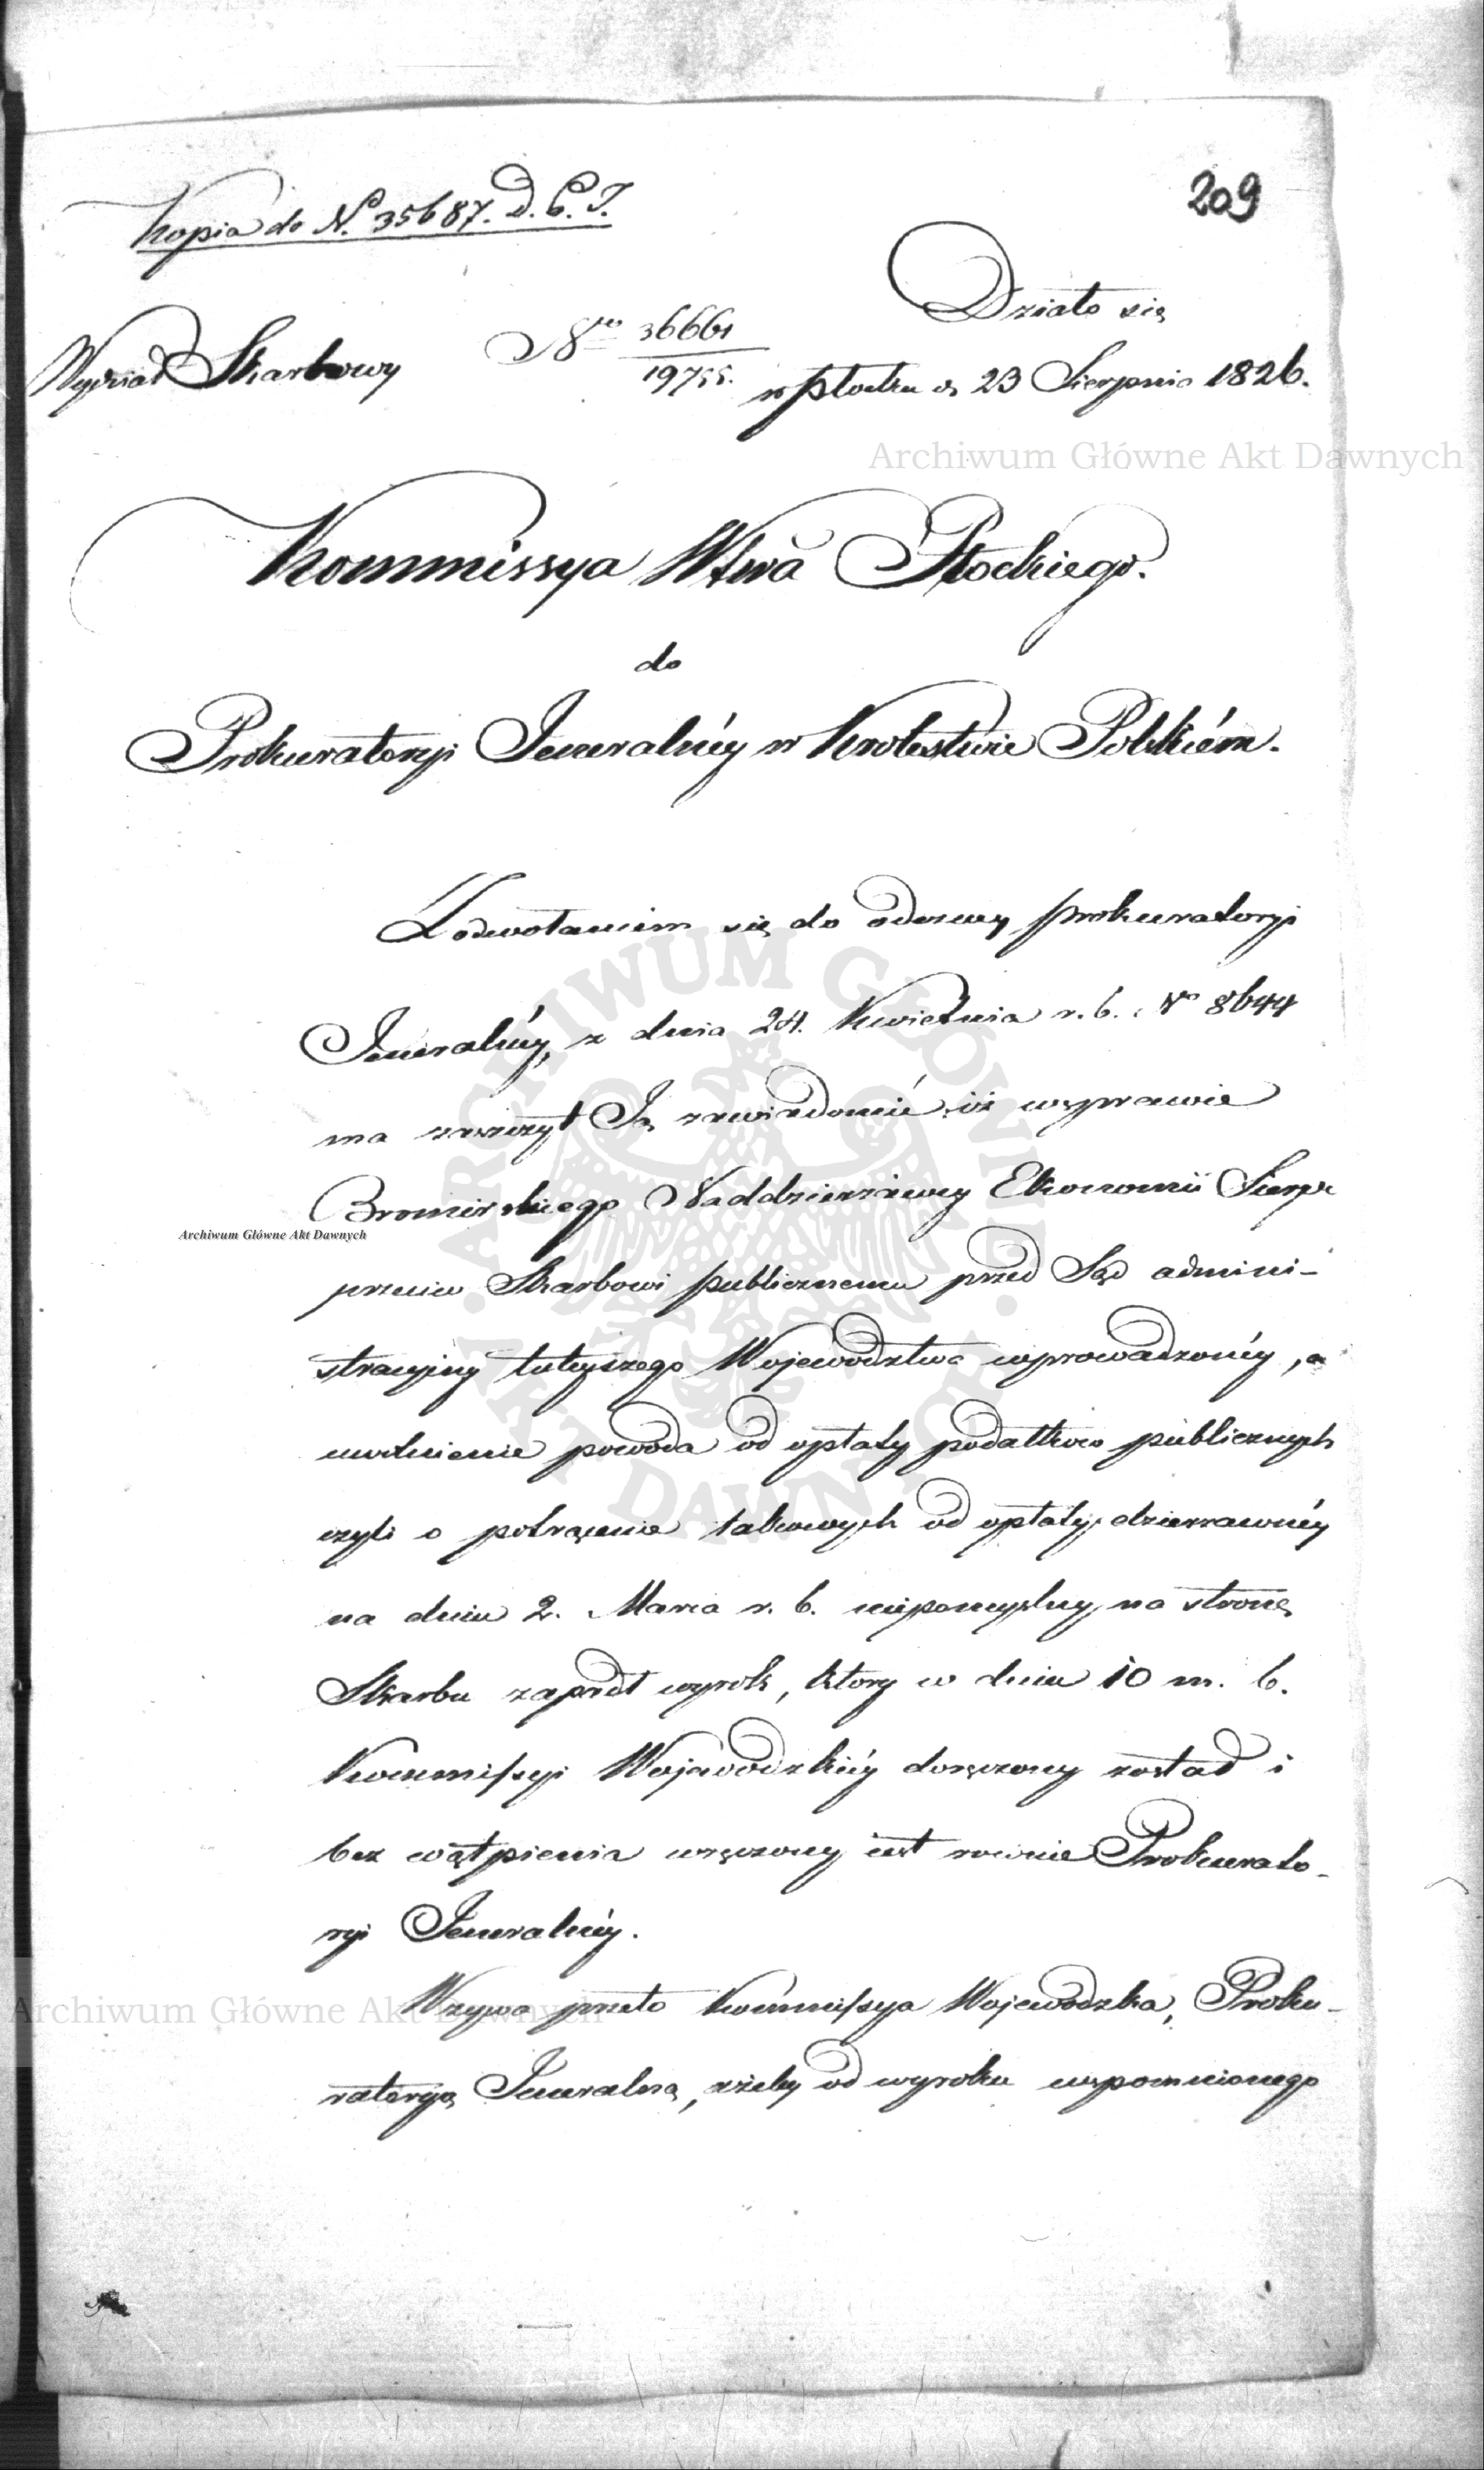 209
Kopia do N. 35687. D. C. J.
Działo się
Wydział Skarbowy Nro 36661
19755. w Płocku d. 23 Sierpnia 1826.
Archiwum Główne Akt Dawnych
Kommissya Wtwa Płockiego.
do
Prokuratoryi Jeneralnéy w Krolestwie Polskiém.
Z odwołaniem się do odezwy prokuratoryi
Jeneralnéy, z dnia 24. Kwietnia r. b. No 8644
ma zaszczyt Ją zawiadomić, iż w sprawie
Bromirskiego Naddzierżawcy Ekonomii Sierpc
Archiwum Główne Akt Dawnych
przeciw Skarbowi publicznemu przed Sąd admini-
stracyiny tuteyszego Województwa wprowadzonéy, o
uwolnienie powoda od opłaty podatkow publicznych
czyli o potrącenie takowych od opłaty dzierzawnéy
na dniu 2. Marca r. b. niepomyslny na stronę
Skarbu zapadł wyrok, ktory w dniu 10 m. b.
Kommissyi Wojewodzkiéy doręczony został i
bez wątpienia wręczony iest rownie Prokurato-
ryi Jeneralnéy.
Wzywa przeto Kommissya Wojewodzka, Proku-
Archiwum Główne Akt Dawnych
ratoryą Jeneralną, ażeby od wyroku wspomnionego
ARCHIWUM GŁÓWNE · AKT DAWNYCH ·